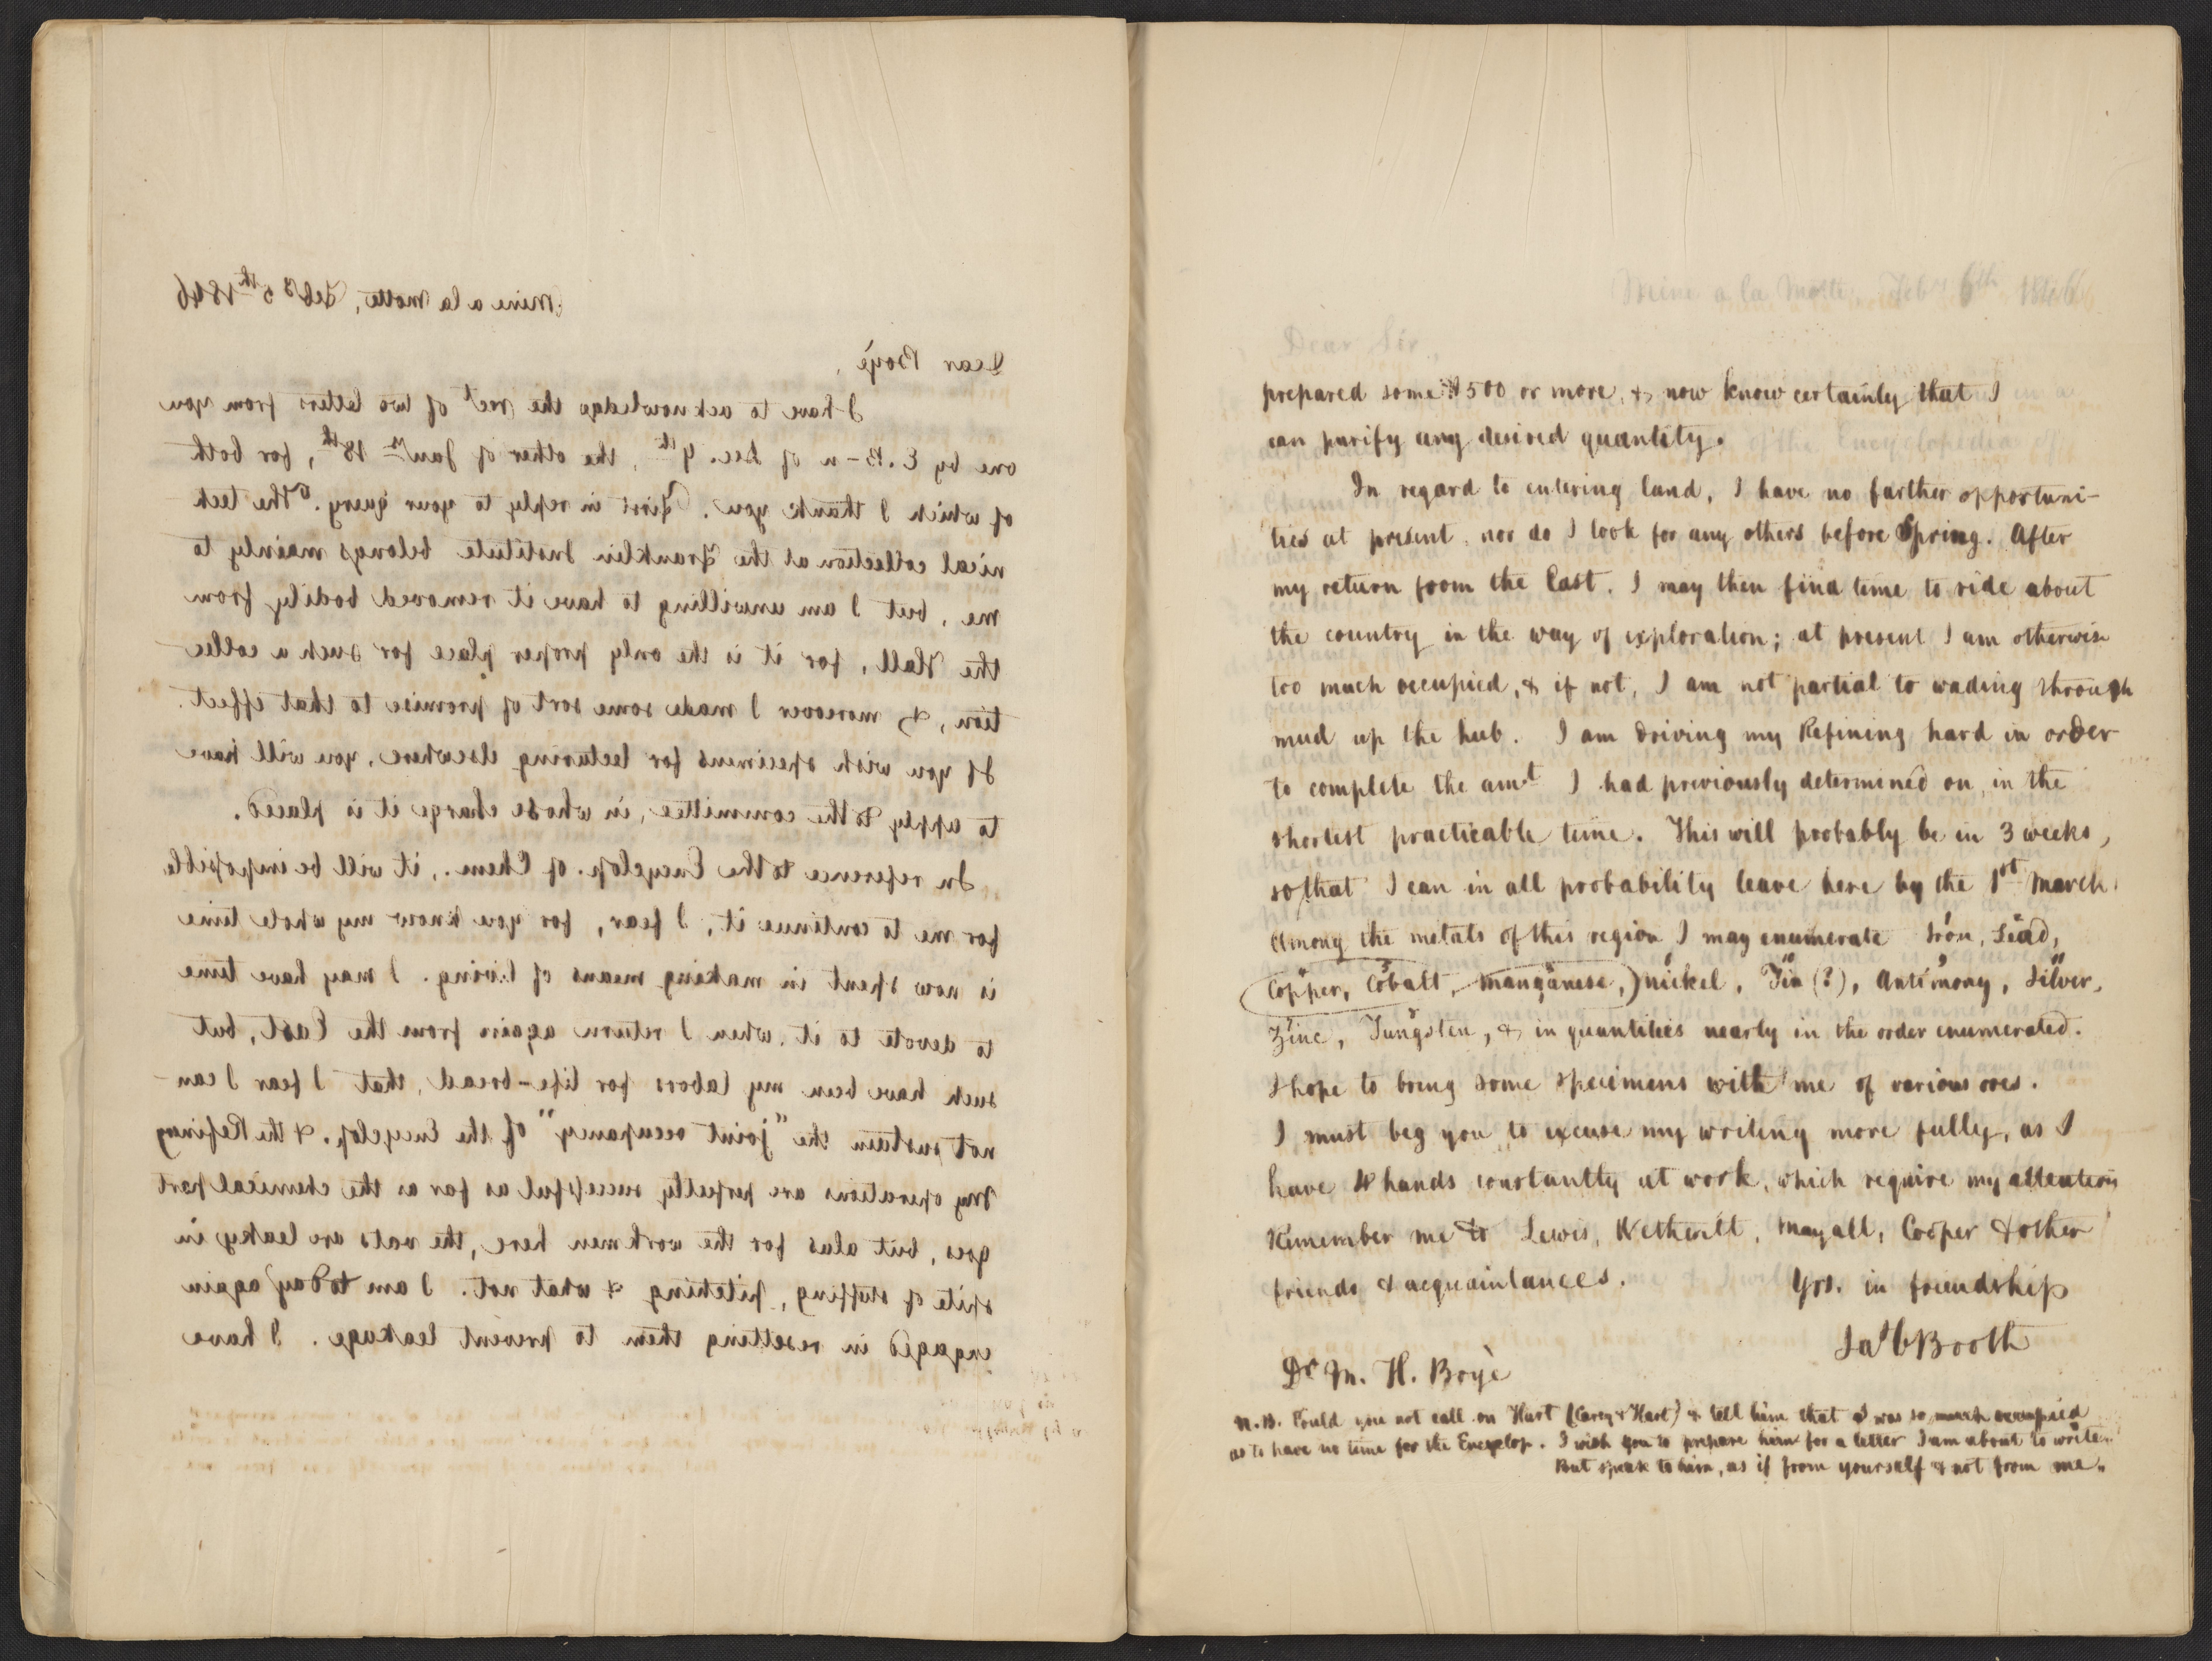 Mine a la Motte, Feby 5th 1846
Dear Boyè,
I have to acknowledge the rect of two letters from you
one by E. B-n of Dec. 9th, the other of Jany 18th, for both
of which I thank you. First in reply to your query. The tech
nical collection at the Franklin Institute belongs mainly to
me, but I am unwilling to have it removed bodily from
the Hall, for it is the only proper place for such a collec
tion, & moreover I made some sort of promise to that effect.
If you wish specimens for lecturing elsewhere, you will have
to apply to the committee, in whose charge it is placed.
In reference to the Encyclop. of Chem., it will be impossible
for me to continue it, I fear, for you know my whole time
is now spent in making means of living. I may have time
to devote to it when I return again from the East, but
such have been my labors for life-bread, that I fear I can
not sustain the "joint occupancy" of the Encyclop. & the Refinery
My operations are perfectly successful as far as the chemical part
goes, but alas for the workmen here, the vats are leaky in
spite of stuffing, pitching & what not. I am today again
engaged in resetting them to prevent leakage. I have
Mine a la Motte, Feby 6th 1846
Dear Sir,
prepared some $500 or more, & now know certainly that I
can purify any desired quantity.
In regard to entering land, I have no farther opportuni-
ties at present, nor do I look for any others before Spring. After
my return from the East, I may then find time to ride about
the country in the way of exploration; at present I am otherwise
too much occupied, & if not, I am not partial to wading through
mud up the hub. I am driving my Refining hard in order
to complete the amt I had previously determined on, in the
shortest practicable time. This will probably be in 3 weeks,
so that I can in all probability leave here by the 1st March.
Among the metals of this region I may enumerate Iron, Lead,
Copper, Cobalt, Manganese,) nickel, Tin (?), Antimony, Silver,
Zinc, Tungsten, & in quantities nearly in the order enumerated.
I hope to bring some specimens with me of various ores.
I must beg you to excuse my writing more fully, as I
have hands constantly at work, which require my attention
Remember me to Lewis, Wetherill, Mayall, Cooper & other
friends & acquaintances. Yrs. in friendship
Jas C Booth
Dr M. H. Boyè
N.B. Could you not call on Hart (Carey & Hart) & tell him that I was so much occupied
as to have no time for the Encyclop. I wish you to prepare him for a letter I am about to write.
But speak to him, as if from yourself & not from me.